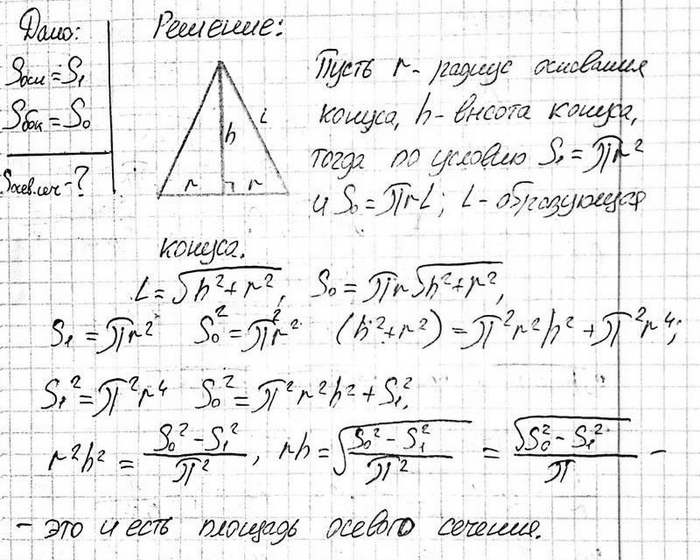 Дано:
Sосн = S₁
Sбок = S₀
Sосев.сеч - ?
Решение:
h
L
r
r
Пусть r - радиус основания
конуса, h - высота конуса,
тогда по условию S₁ = πr²
и S₀ = πrL; L - образующая
конуса.
L = √(h² + r²), S₀ = πr√(h² + r²),
S₁ = πr² S₀² = π²r² (h² + r²) = π²r²h² + π²r⁴;
S₁² = π²r⁴ S₀² = π²r²h² + S₁²,
r²h² = (S₀² - S₁²)/π², rh = √((S₀² - S₁²)/π²) = √(S₀² - S₁²)/π -
- это и есть площадь осевого сечения.